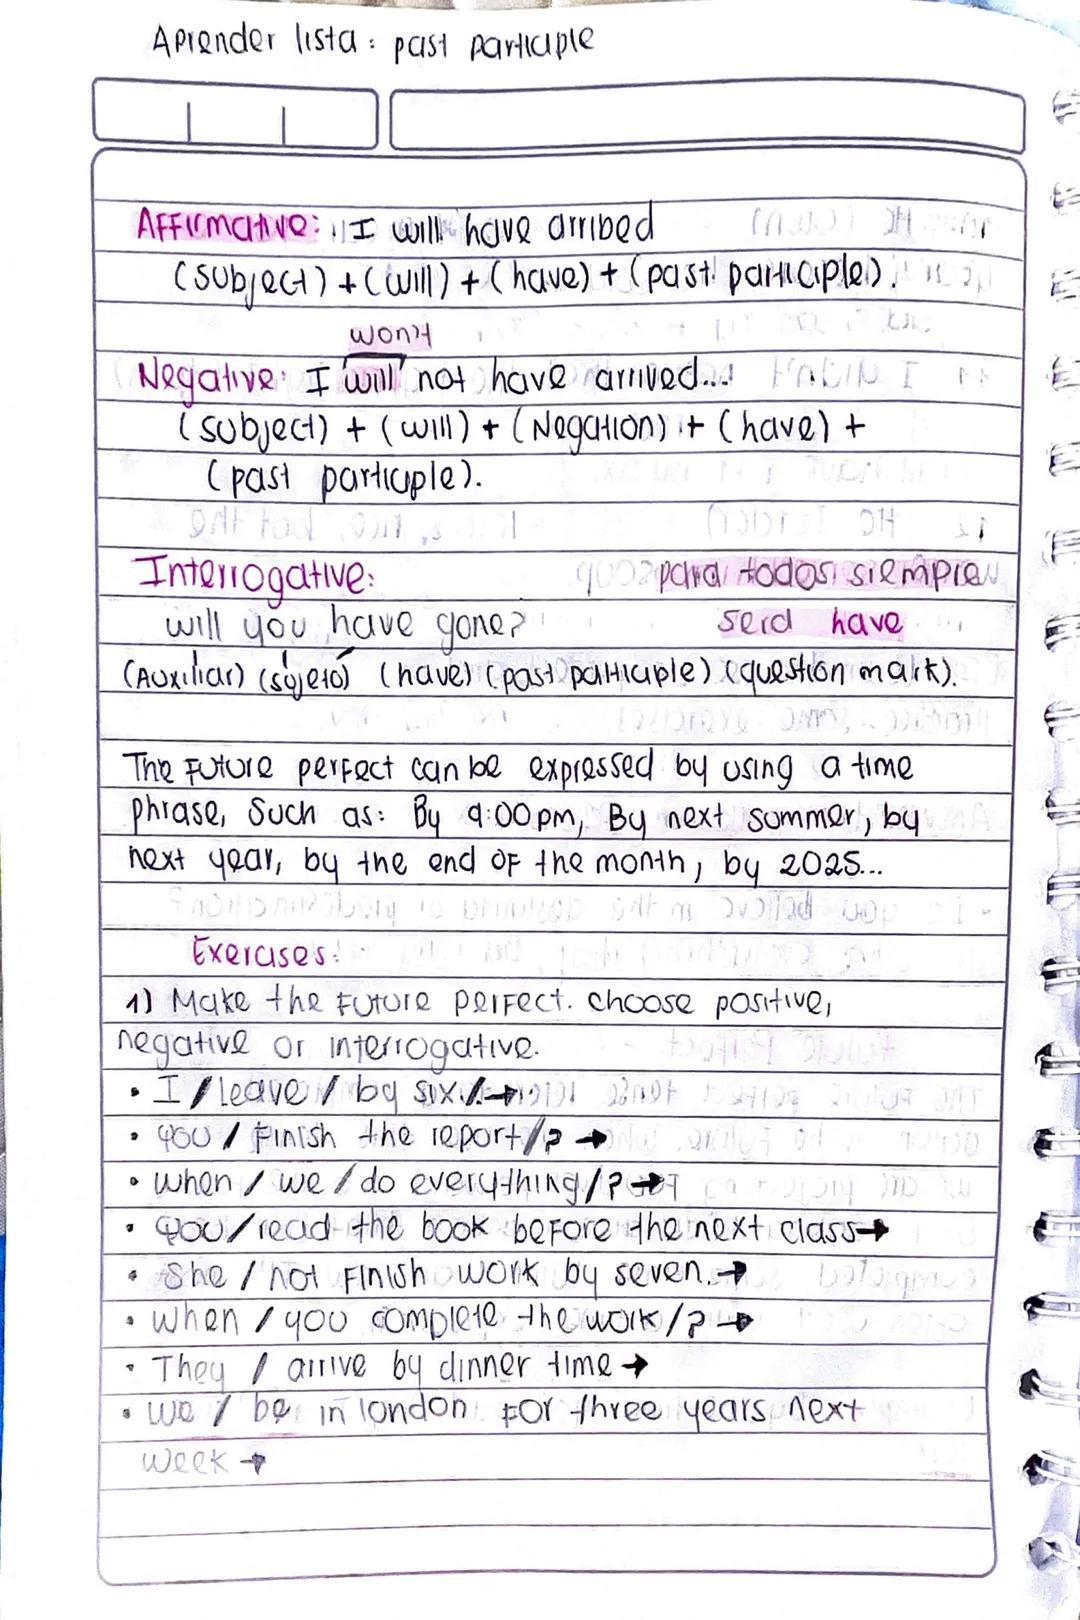 Aprender lista: past participle
Affirmative: I will have arribed
(subject) + (will) + (have) + (past participle).
won't
Negative: I will not have arrived...
(subject) + (will) + (Negation) + (have) +
(past participle).
Interrogative: para todos siempre
will you have gone? será have
(Auxiliar) (sujeto) (have) (past participle) (question mark).
The Future perfect can be expressed by using a time
phrase, such as: By 9:00 pm, By next summer, by
next year, by the end of the month, by 2025...
Exercises:
1) Make the Future perfect. choose positive,
negative or interrogative.
• I / leave / by six. →
• you / Finish the report/? →
• when / we / do everything/? →
• you / read the book before the next class →
• She / not Finish work by seven. →
• when / you complete the work/? →
• They / arrive by dinner time →
• we / be in london for three years next
week →